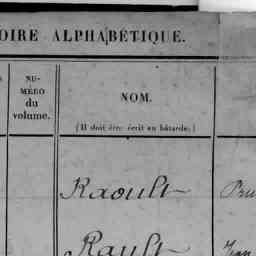 OIRE ALPHABÉTIQUE.
NU-
MÉRO
du
volume.
NOM.
(Il doit être écrit en bâtarde.)
Raoult
Rault